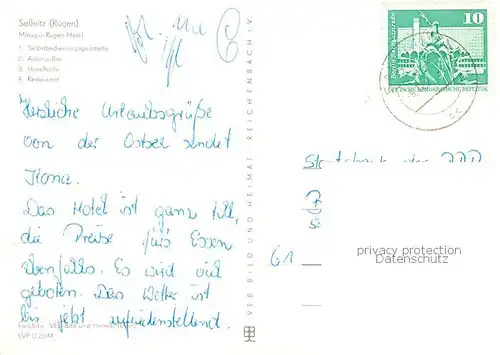 Saßnitz (Rügen)
Mitropa-Rügen-Hotel
1. Selbstbedienungsgaststätte
2. Arkona-Bar
3. Hotelhalle
4. Restaurant
Herzliche Urlaubsgrüße
von der Ostsee sendet
Ilona.
Das Hotel ist ganz toll,
die Preise für's Essen
ebenfalls. Es wird viel
geboten. Das Wetter ist
bis jetzt zufriedenstellend.
Farbfoto: VEB Bild und Heimat
EVP 0,20 M
VEB BILD UND HEIMAT REICHENBACH i. V.
10
DEUTSCHE DEMOKRATISCHE REPUBLIK
Staatsbank der DDR
61
privacy protection
Datenschutz